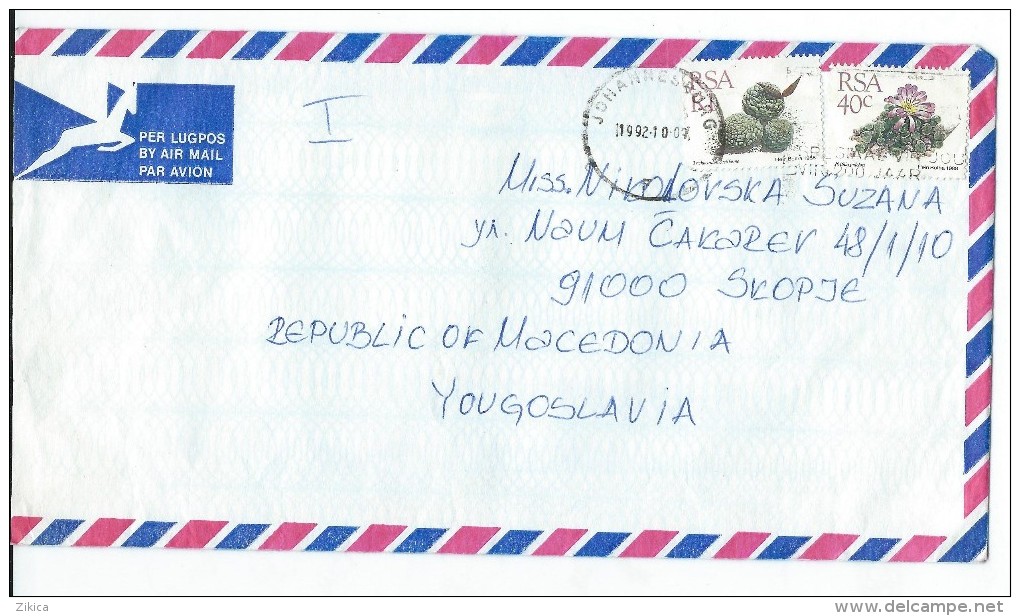 PER LUGPOS
BY AIR MAIL
PAR AVION
I
JOHANNESBURG
1992-10-0
RSA
R1
RSA
40c
200 JAAR
Miss. NIKOLOVSKA SUZANA
ул. NAUM ČAKAREV 48/1/10
91000 SKOPJE
REPUBLIC OF MACEDONIA
YOUGOSLAVIA
Zikica
delcampe.net